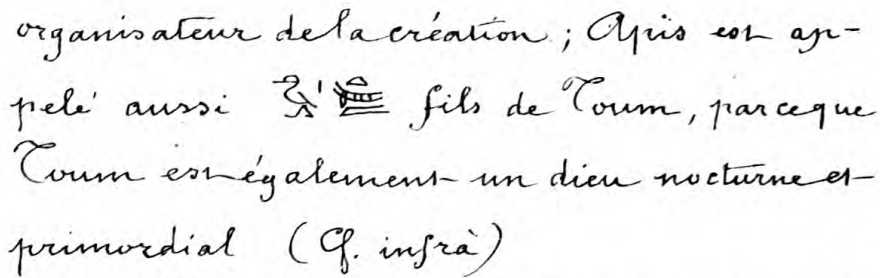 organisateur de la création ; Apis est ap-
pelé aussi 𓅭𓏤 fils de Toum, parceque
Toum est également un dieu nocturne et
primordial (Cf. infrà)